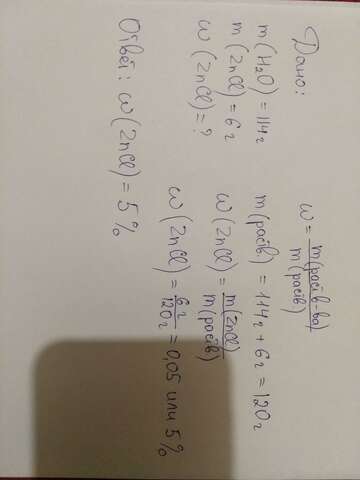 Дано:
m(H₂O) = 114 г
m(ZnCl) = 6 г
w(ZnCl) = ?
w = m(раств-ва)/m(раств)
m(раств) = 114 г + 6 г = 120 г
w(ZnCl) = m(ZnCl)/m(раств)
w(ZnCl) = 6 г/120 г = 0,05 или 5%
Ответ: w(ZnCl) = 5%